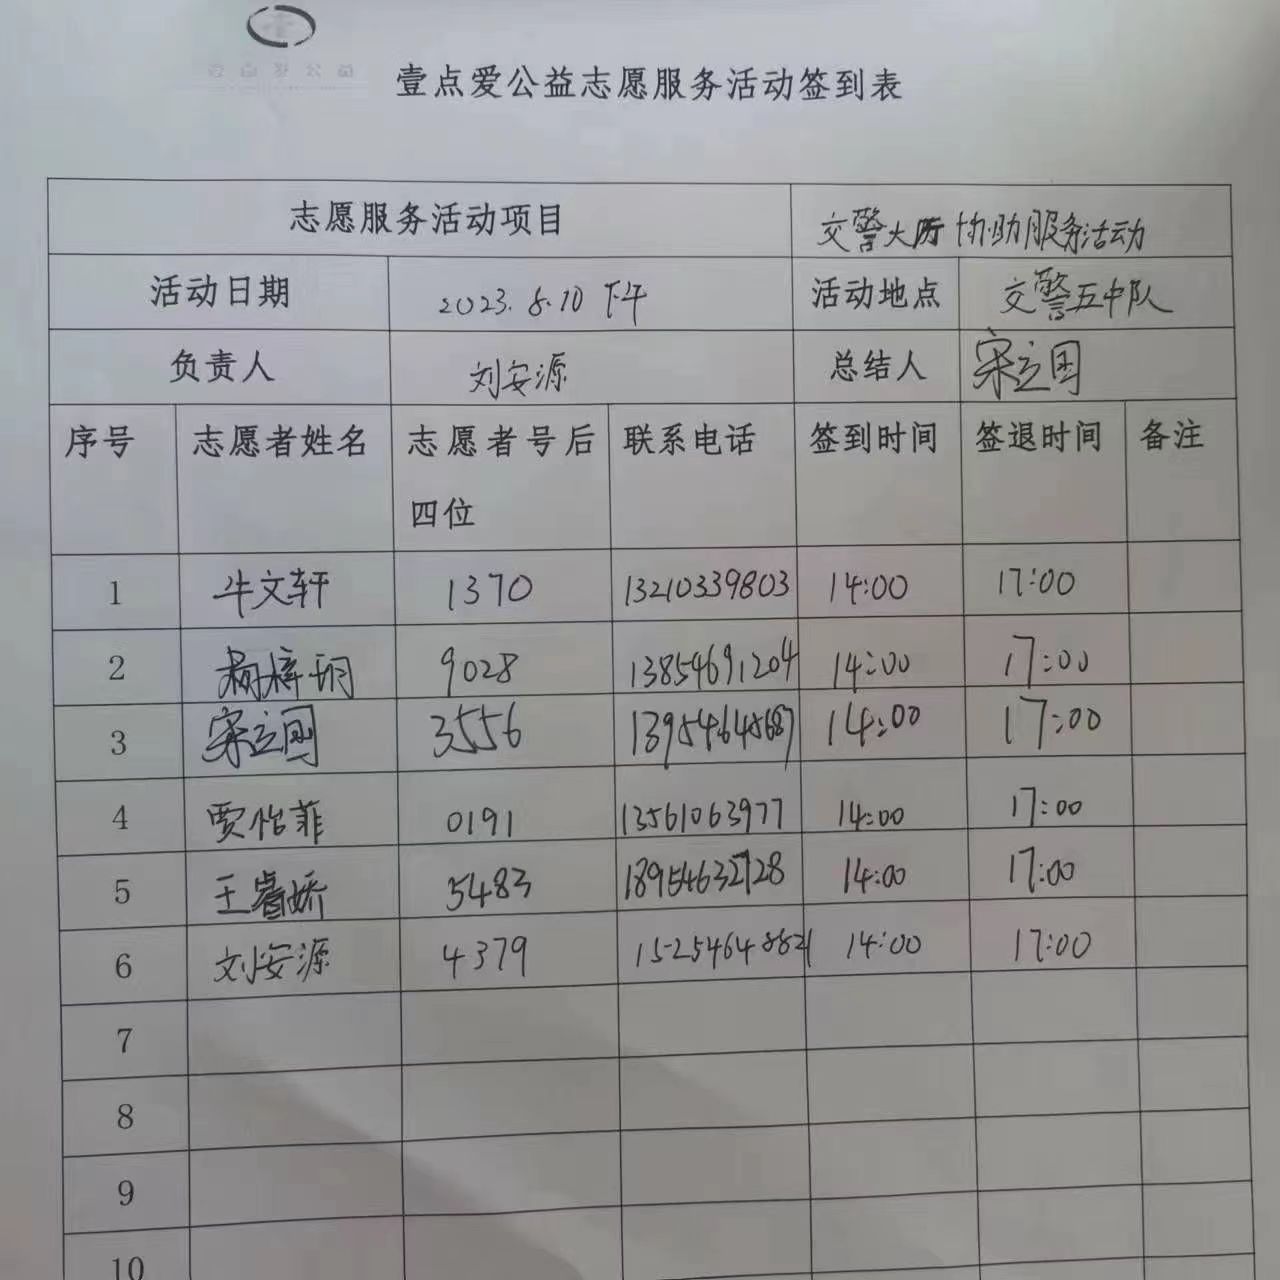 壹点爱公益志愿服务活动签到表
志愿服务活动项目 交警大厅协助服务活动
活动日期 2023.8.10 下午 活动地点 交警五中队
负责人 刘安源 总结人 宋立国
序号 志愿者姓名 志愿者号后四位 联系电话 签到时间 签退时间 备注
1 牛文轩 1370 13210339803 14:00 17:00
2 杨梓玥 9028 13854691204 14:00 17:00
3 宋立国 3556 13954645687 14:00 17:00
4 贾怡菲 0191 13561063977 14:00 17:00
5 王睿娇 5483 18954632728 14:00 17:00
6 刘安源 4379 15254648821 14:00 17:00
7
8
9
10